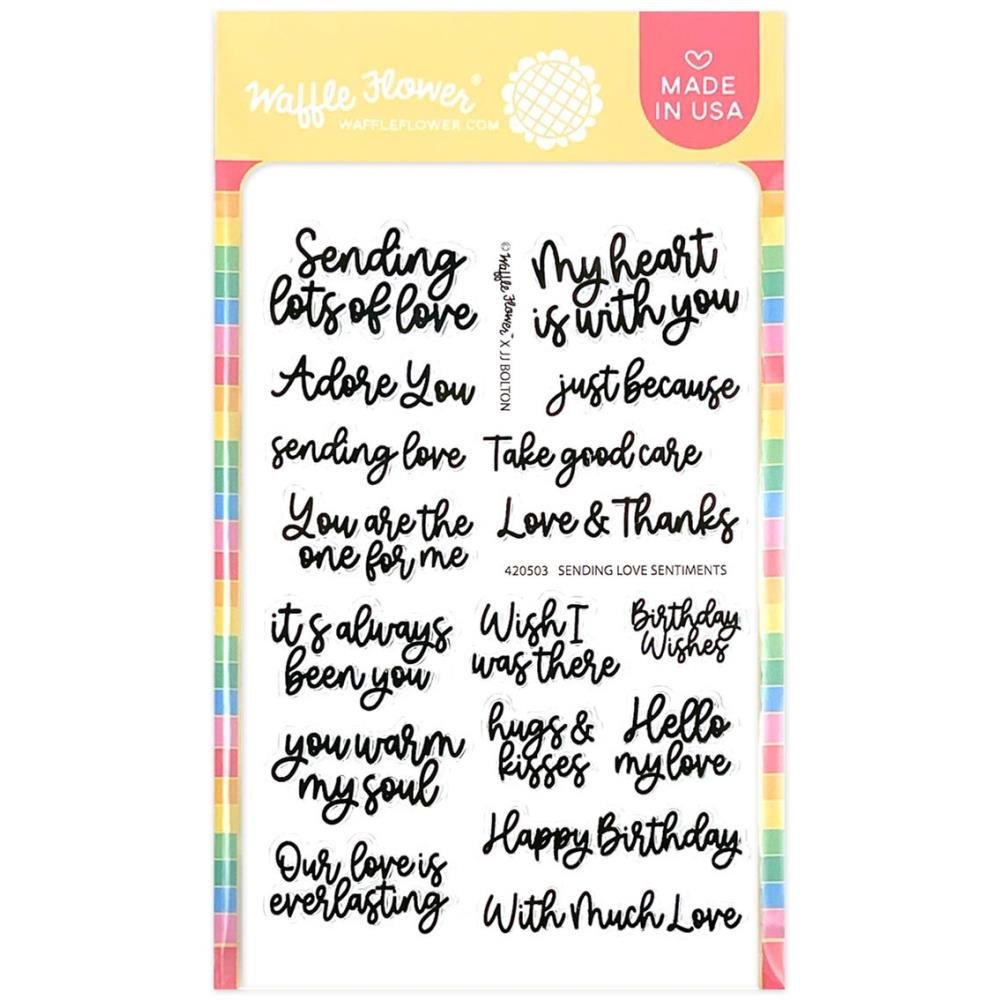 Waffle Flower®
WAFFLEFLOWER.COM
MADE
IN USA
Sending
lots of love
Adore You
sending love
You are the
one for me
it's always
been you
you warm
my soul
Our love is
everlasting
© Waffle Flower™ X JJ BOLTON
My heart
is with you
just because
Take good care
Love & Thanks
420503 SENDING LOVE SENTIMENTS
Wish I
was there
Birthday
Wishes
hugs &
kisses
Hello
my love
Happy Birthday
With Much Love